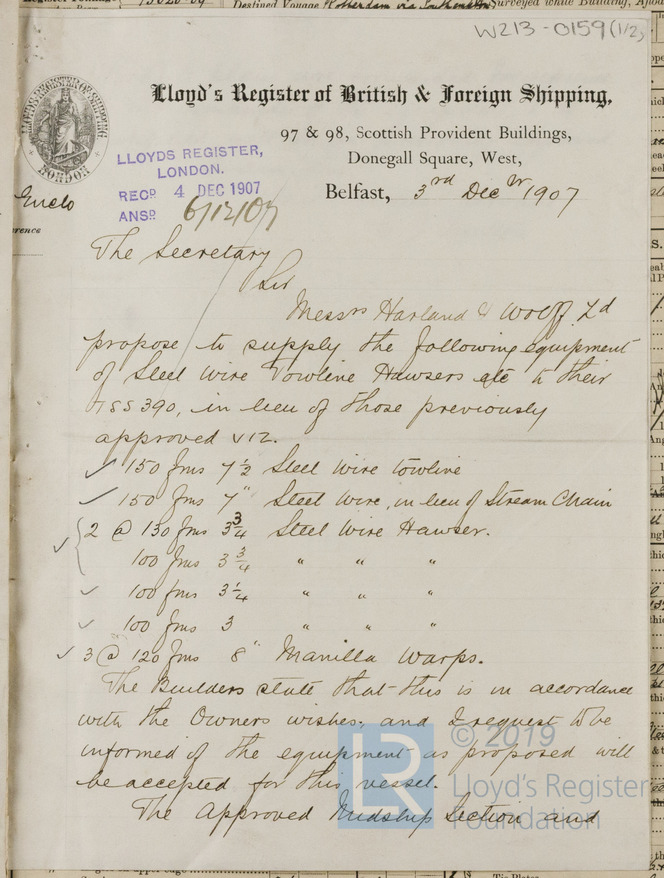 13020·69
Destined Voyage Rotterdam via Southampton Surveyed while Building, Afloat
W213-0159(1/2)
LLOYD'S REGISTER OF SHIPPING
LONDON
Lloyd's Register of British & Foreign Shipping,
97 & 98, Scottish Provident Buildings,
Donegall Square, West,
Belfast, 3rd Decr 1907
LLOYDS REGISTER,
LONDON.
RECD 4 DEC 1907
ANSD 6/12/07
Enclo
The Secretary
Sir
Messrs Harland & Wolff Ld
propose to supply the following equipment
of Steel Wire Towline Hawsers etc to their
TSS 390, in lieu of those previously
approved viz.
✓ 150 fms 7½ Steel Wire towline
✓ 150 fms 7" Steel Wire, in lieu of Stream Chain
✓ { 2 @ 130 fms 3¾ Steel Wire Hawser.
100 fms 3¾ " " "
✓ 100 fms 3¼ " " "
✓ 100 fms 3 " " "
✓ 3 @ 120 fms 8" Manilla Warps.
The Builders state that this is in accordance
with the Owners wishes, and I request to be
informed if the equipment as proposed will
be accepted for this vessel.
The Approved Midship Section and
LR © 2019
Lloyd's Register
Foundation